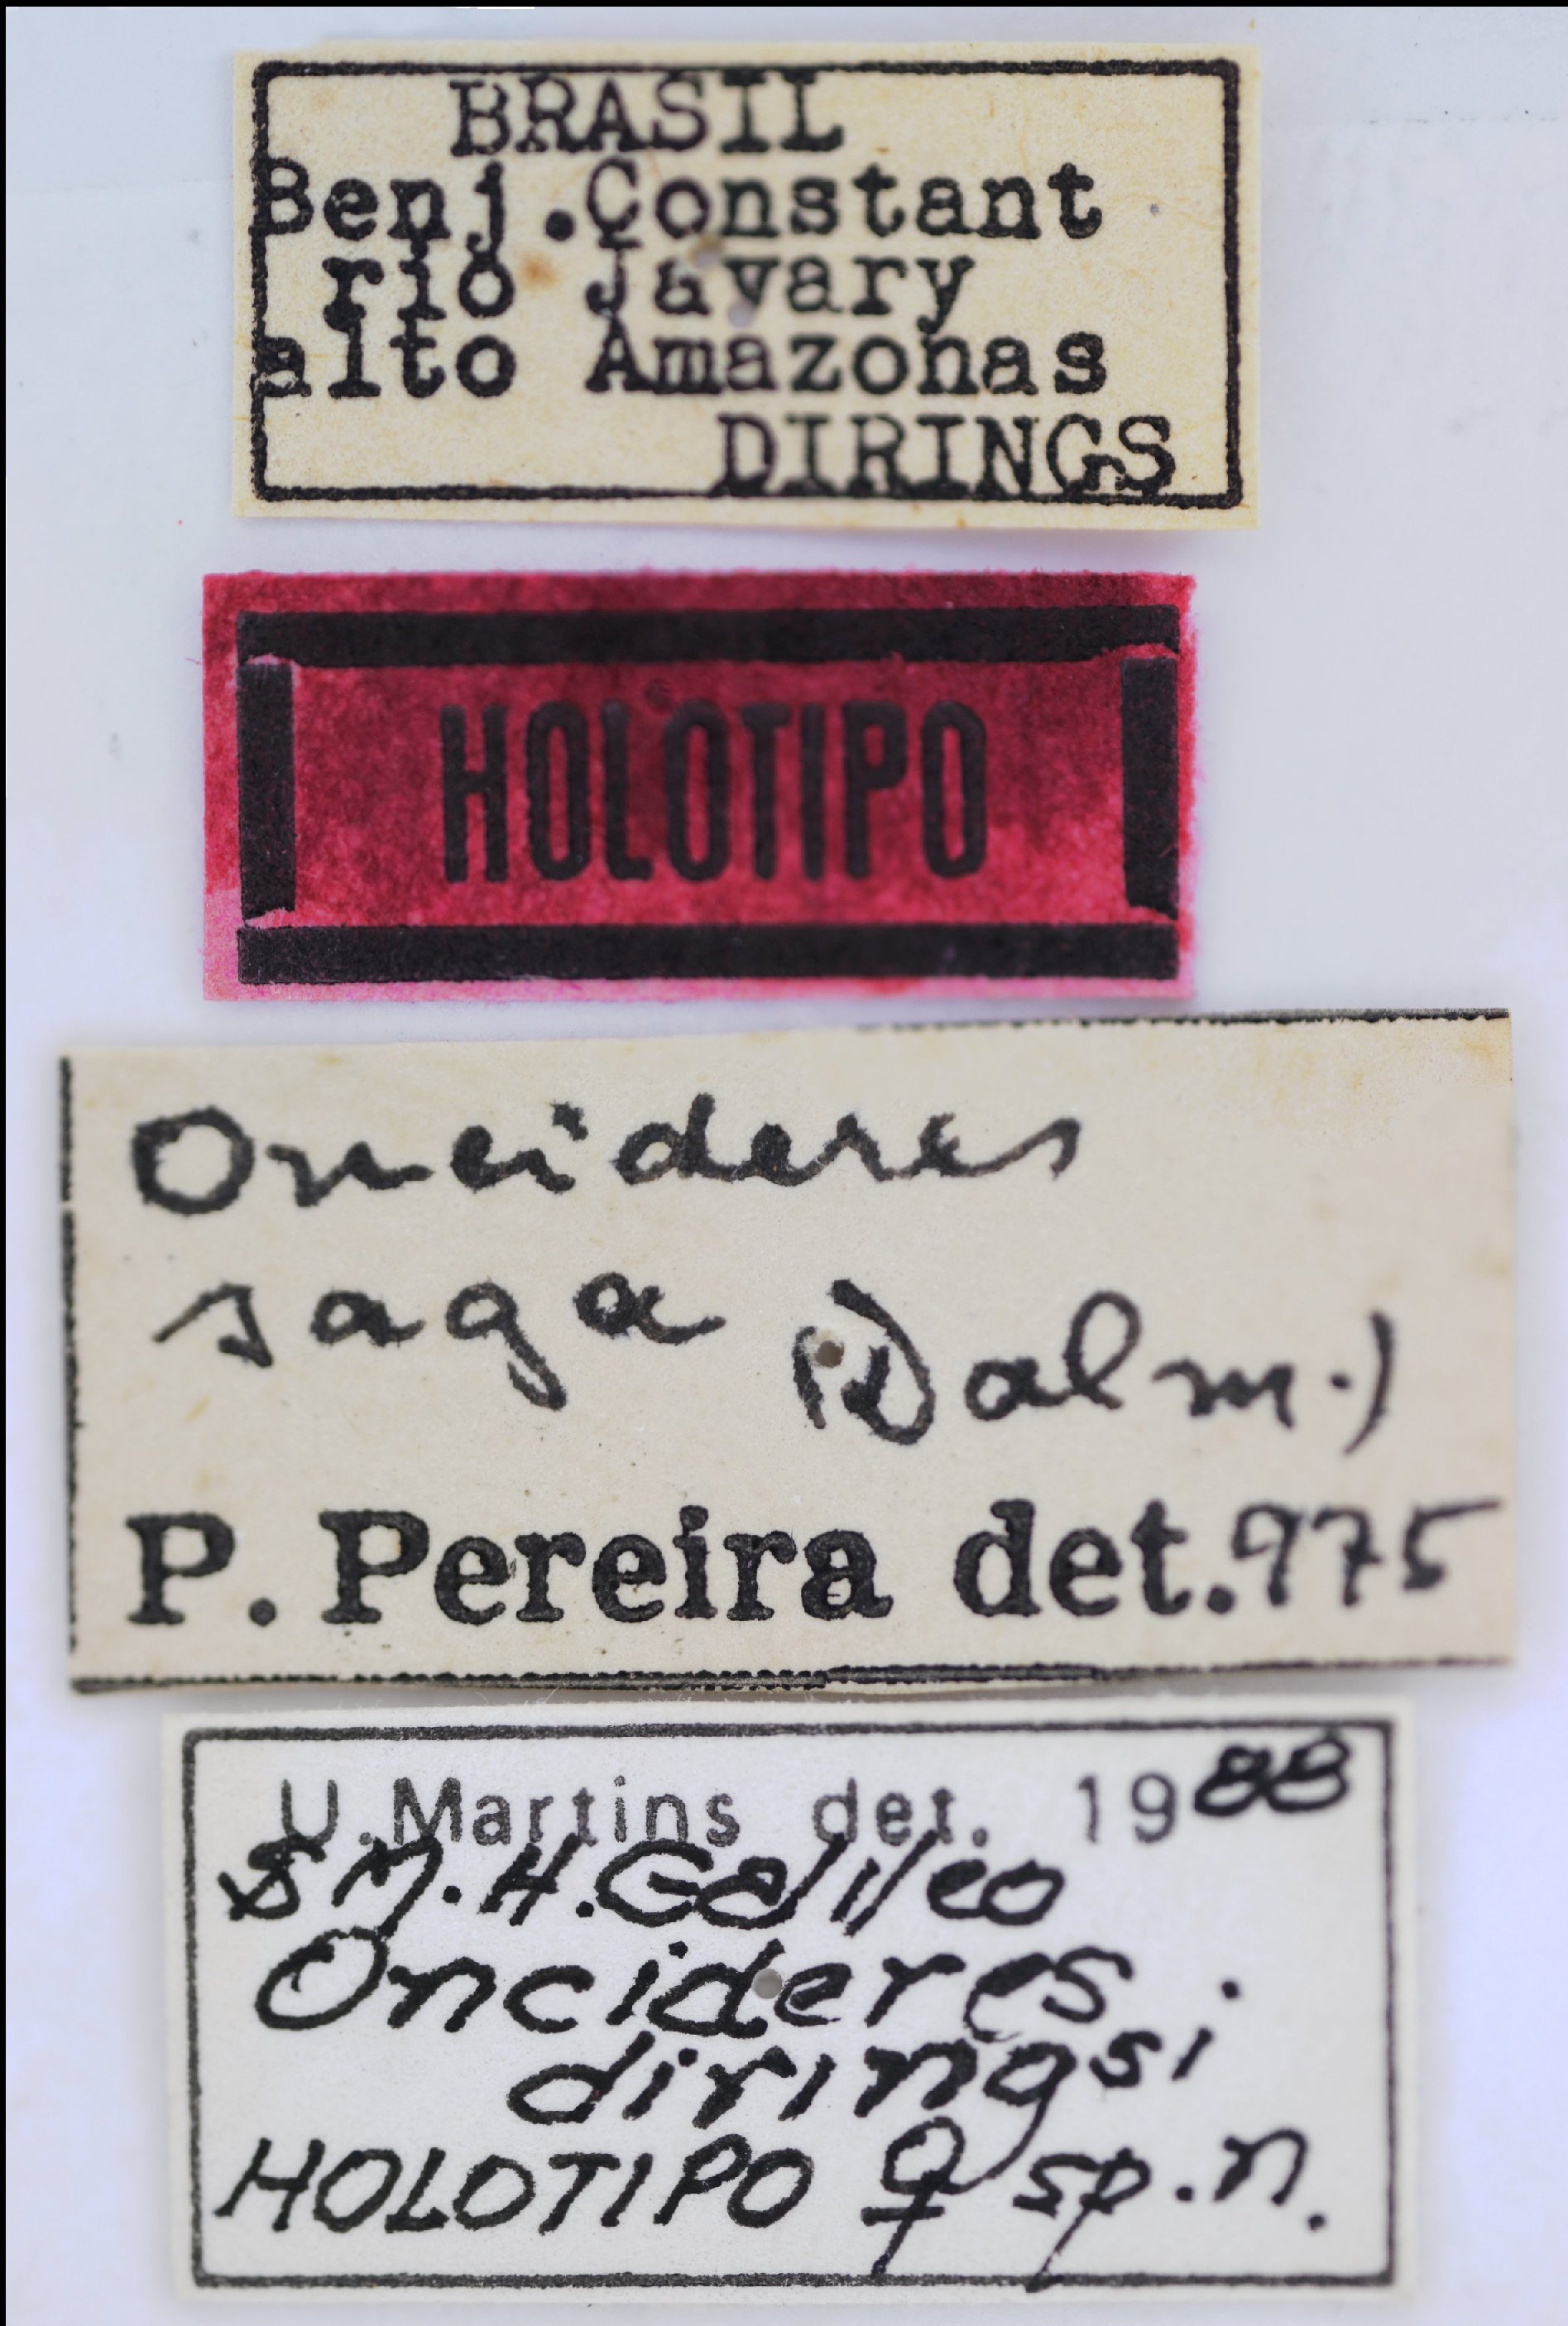 BRASIL
Benj.Constant
rio Javary
alto Amazonas
DIRINGS
HOLOTIPO
Oncideres
saga (Dalm.)
P. Pereira det. 975
U.Martins det. 1988
& M.H.Galileo
Oncideres
diringsi
HOLOTIPO ♀ sp.n.